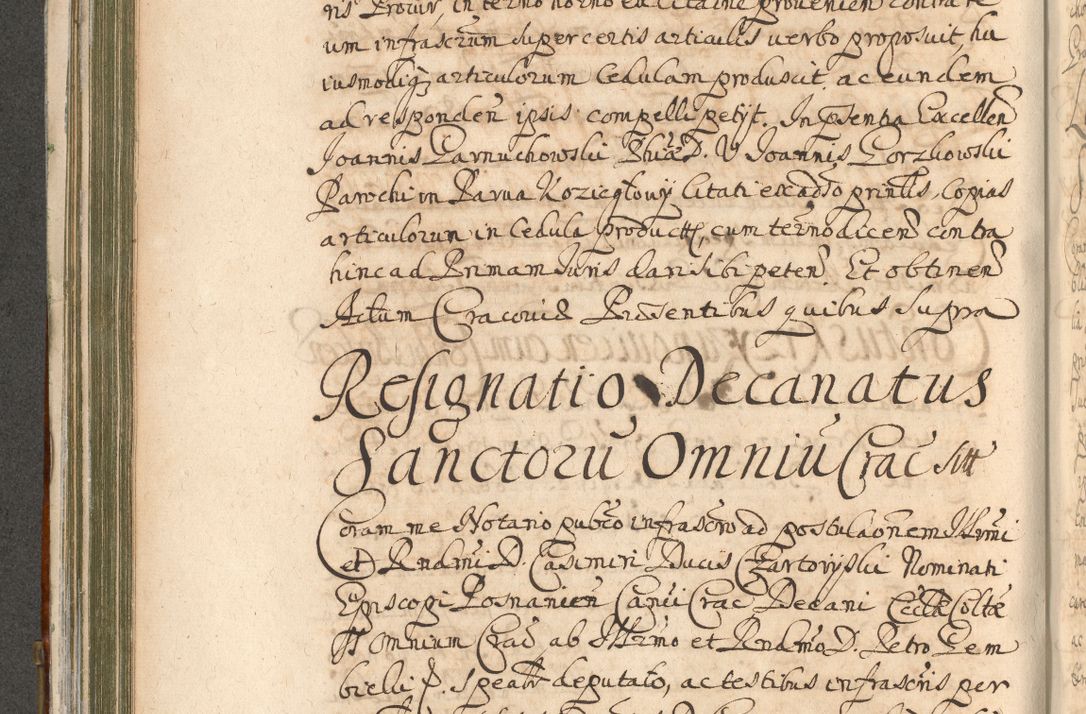 um infrascrum super certis articulis verbo proposuit, hu
iusmodiq articulorum Cedulam produxit, ac eundem
ad responden ipsis compelli petijt. In pñtia Excellen
Joannis Garnuchowski D. V Joannis Gorzkowski
Parochi in Parva Kozieglowij Citati ex adso prinlis, Copias
articulorum in Cedula product, cum termo dicen contra
hinc ad Primam Juris dari sibi peten. Et obtinen
Actum Cracoviæ Præsentibus quibus supra
Resignatio Decanatus
Sanctorũ Omniũ Crac
Coram me Notario pubco infrascro ad postulaonem Illrmi
et Rndmi D. Casimiri Ducis Czartoryski Nominati
Episcopi Posnanien Canci Crac Decani Ecclæ Coltæ
SS Omnium Crac ab Illrmo et Rndmo D. Petro Gem
bicki P. Spealr deputato, ac testibus infrascris per